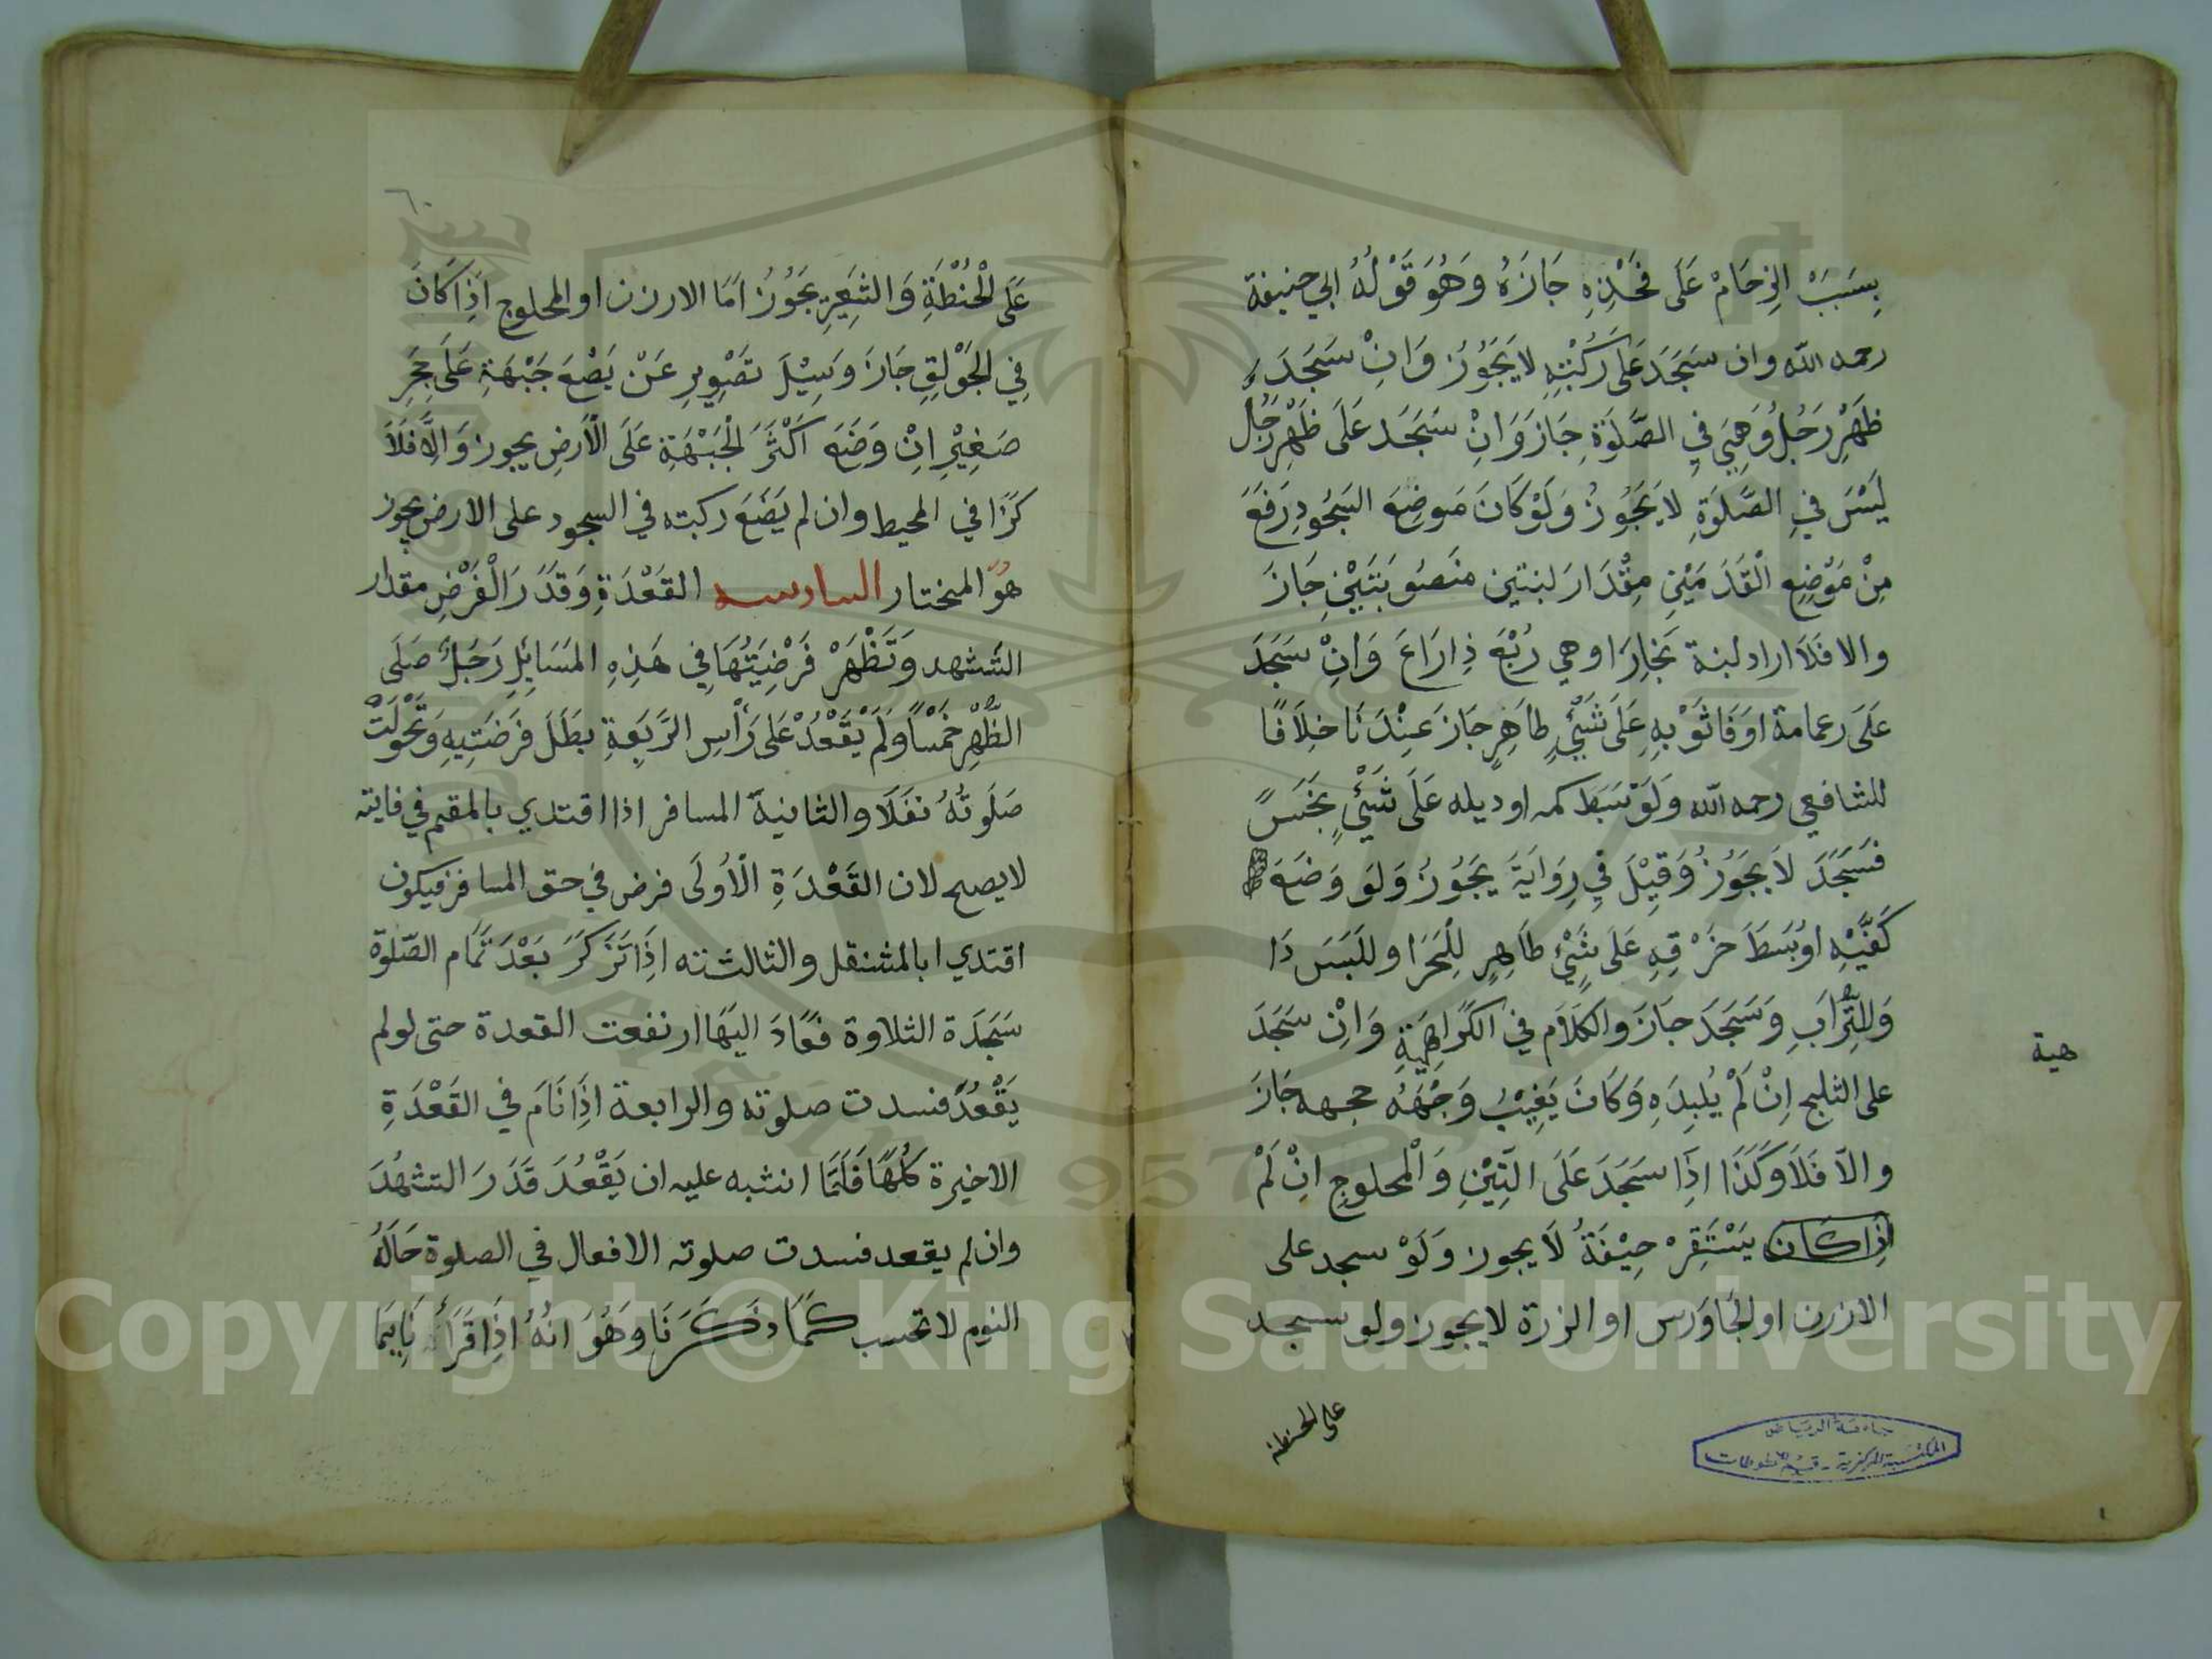 بِسَبَبْ الزِحَامْ عَلَى فَخْذِهِ جَازَهُ وَهُوَ قَوْلُهُ ابي حنيفة
رحمه الله وان سَجَدَ عَلَى رَكُبْتِهِ لايَجُوُزُ وَانِْ سَجَدَ
ظَهْرِ رَجُلُ وَهِيَ فيِ الصَّلَوَةِ جَازَ وَانِْ سَجَدَ عَلَى ظَهْرِ رَجُل
لَيْسَ فيِ الصَّلَوَةِ لايَجُوُزُ وَلَوْ كَانَ مَوضِعَ السَجُودِ رَفَعَ
مِنْ مَوْضِعِ الْقَدَمَيْنِ مِقْدَارَ لبنتين منَصُوبَتَيْنِ جَازَ
والا فَلاَ اراد لبنة بَخِارَا وهي رُبْعَ ذِارَاعَ وَانِْ سَجَدَ
عَلَى رعمامة اوَفَاثَوْبِهِ عَلَى شَيْئٍ طاَهِرٍ جَازَ عِنْدَنَا خلِاَفًا
للشافعي رحمه الله وَلَوَ بَسَطَ كمه اوديله عَلَى شَيْئٍ بِخَسً
فَسَجَدَ لاَيَجُوُزُ وَقِيْلَ فيِ رِوَايَةَ يَجُوُزُ وَلوَ وَضَعَ
كَفَّيْهِ اوُبَسَطَ خَرْقِهِ عَلَى شَيْءٍ طَاهِرٍ لِلْحَرَا وللَبَسَ دَا
وَللِتُّرابَِ وَسَجَدَ جَازَ والكلاَم في الكَرَاهِيَةِ وَانِْ سَجَدَ
هية
على الثلج اِنْ لَمْ يُلبِدَهِ وَكَانَ يَغِيْبُ وَجْهَهُ حجمه جَازَ
والاّ فَلاَ وَكَذَا اذَِا سَجَدَ عَلَى التِيْنِ وَالْمحلوج انِْ لَمْ
اذِاكَان يَسْتَقِرْ حِيْفَةُ لاَيجوز وَلَوْ سجد على
الارزن اولجَاوَرس اوالزرة لايجوز ولو سجد
على الحنطة
جامعة الرياض
المكتبة المركزية - قسم المخطوطات
٦٠
عَلَى الْحُنْطَةِ وَالشَعِيَرِ يَجُوُزُ اَمَا الارزن اوالمحلوج اذَِا كَانَ
فيِ الجَوْلقِِ جَازَ وَسِيْلَ تصَْوِيرِ عَنْ يَضْعَ جَبْهَةِ عَلَى حَجَرِ
صَغِيْرِ انِْ وَضَعَ اَكْثَرَ الْجَبْهَةِ عَلَى الْاَرضِ يجوز وَالِاَّفَلاَ
كَزَا في المحيط وان لم يَضَعَ ركبته في السجود على الارض يجوز
هُوَ المختار السادسه القَعْدَةِ وَقَدَرَ الْفَرْضِ مقدار
التَشهد وَتَظْهَرْ فَرْضِيَتُهَا فيِ هَذِهِ المَسَايِلِ رَجَلٌ صَلَى
الظُّهْرِ خَمْسًا وَلَمْ يَقْعُدْ عَلَى رَأسِ الرَبَعِةِ بطَلَ فَرَضَتِيهِ وَتَحْوَلَتْ
صَلَوتُهُ نفَلاَ والثانيةَ المسافر اذا اقتدي بالمقيم في فايته
لايصح لان القَعْدَةِ الْاُولَى فرض في حق المسافر فيكون
اقتدي ابالمتنقل والثالثته اذَِا تَزَكَرَ بَعْدَ تَمَام الصّلوة
سَجَدَة الثلاوة فَعَادَ اليَهَا ارنفعت القعدة حتى لولم
يَقْعُدَ فسدت صلوته والرابعة اذَِا نَامَ في القَعْدَةِ
الاخيرة كُلهًا فَلَمَا انثبه عليه ان يَقْعُدَ قَدَرَ التشهُدَ
وان لم يقعد فسدت صلوته الافعال في الصلوة حَالَهُ
النوم لا تحسب كَمَا ذَكَرَنَا وَهُوَ انهُ اذَِا قَرَأ نَايِمَا
Copyright © King Saud University
1957